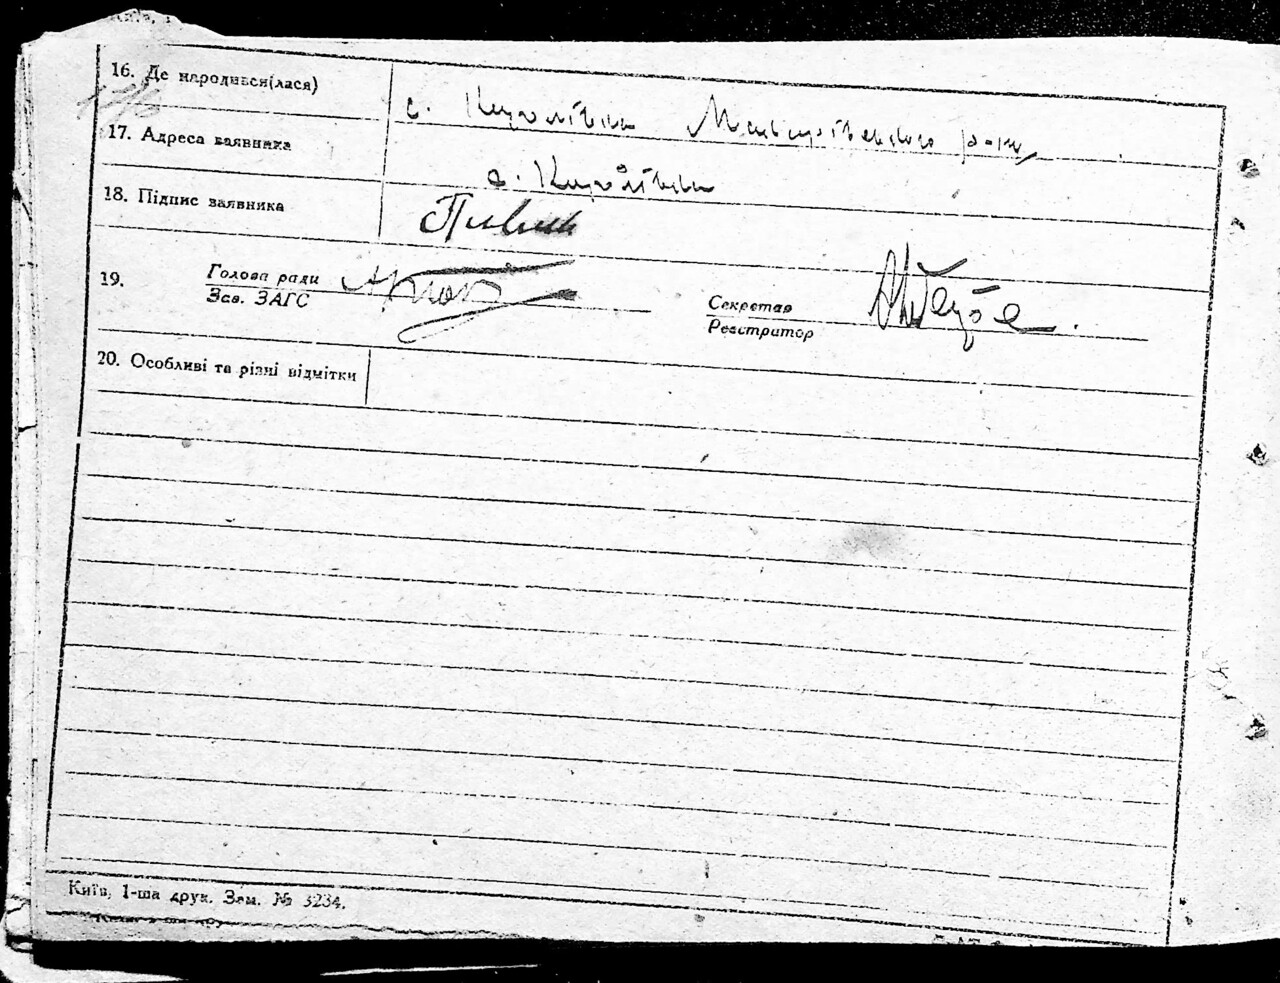 16. Де народився(лася)
с. Королівка Макарівського р-ну
17. Адреса заявника
с. Королівка
18. Підпис заявника
19.
Голова ради
Зав. ЗАГС
Секретар
Реєстратор
20. Особливі та різні відмітки
Київ, 1-ша друк. Зам. № 3234.